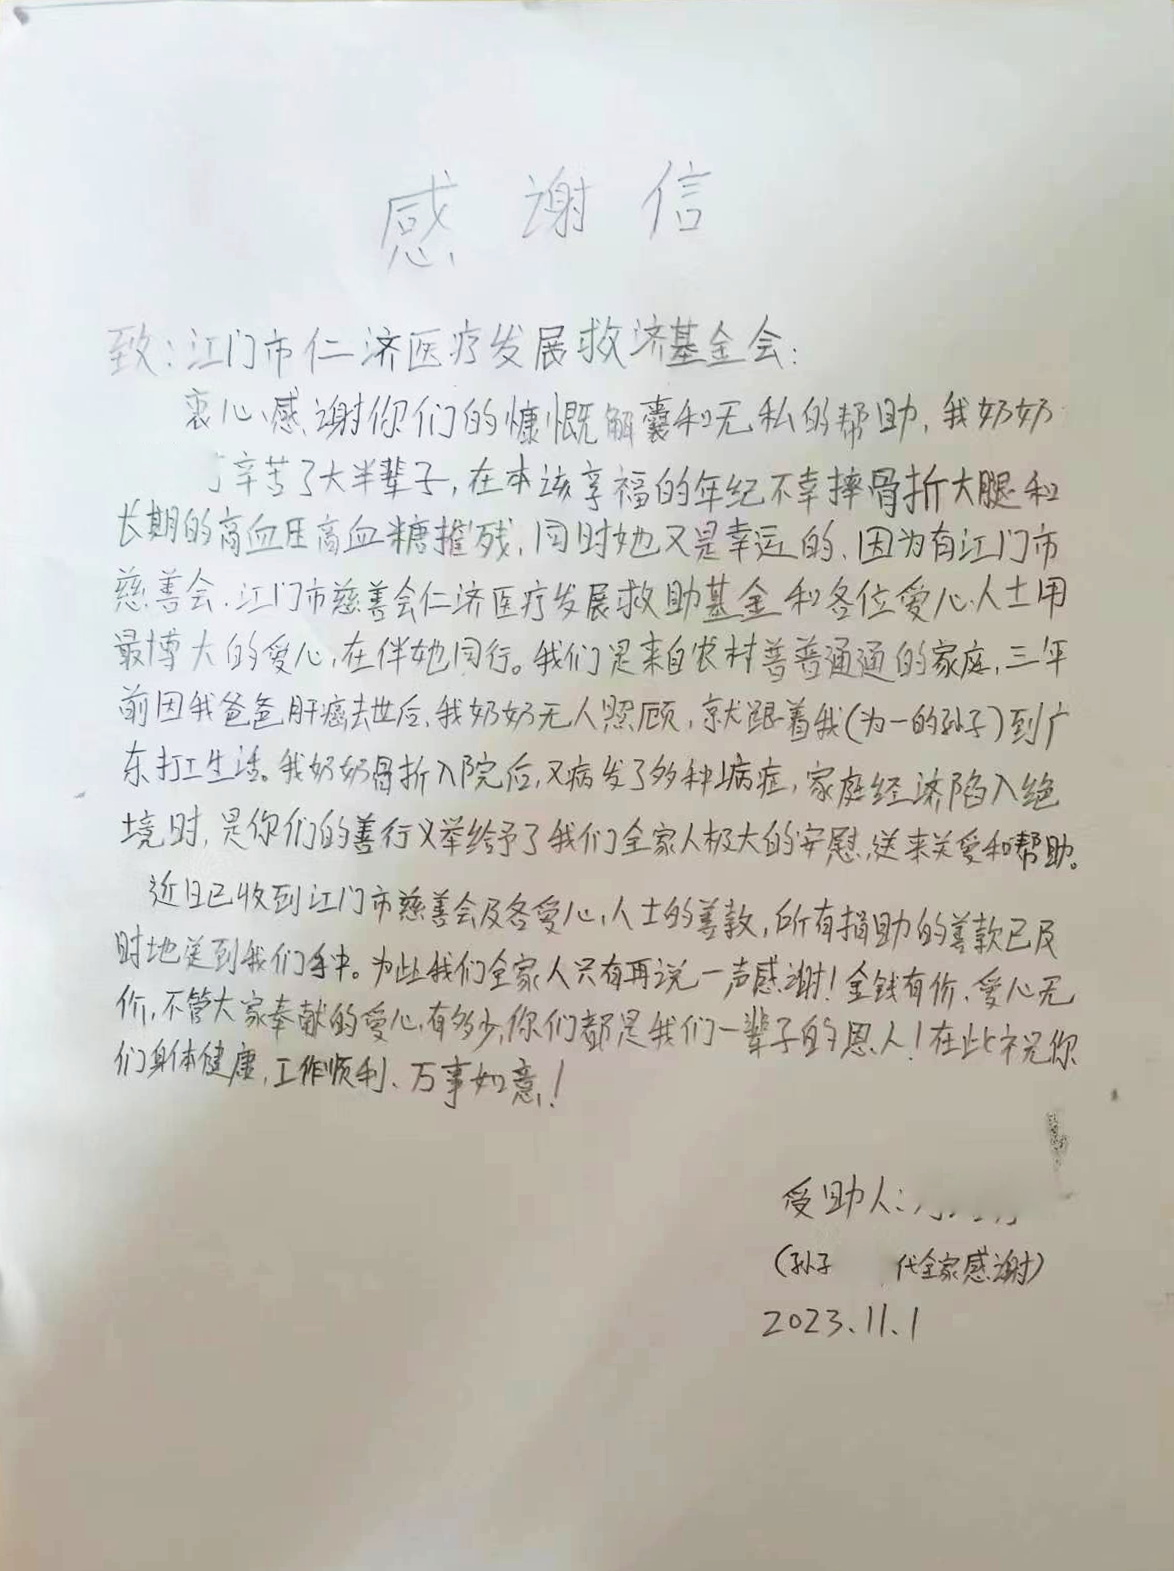 感谢信
致：江门市仁济医疗发展救济基金会：
衷心感谢你们的慷慨解囊和无私的帮助，我奶奶
辛苦了大半辈子，在本该享福的年纪不幸摔骨折大腿和
长期的高血压高血糖摧残，同时她又是幸运的、因为有江门市
慈善会．江门市慈善会仁济医疗发展救助基金和各位爱心人士用
最博大的爱心，在伴她同行。我们是来自农村普普通通的家庭，三年
前因我爸爸肝癌去世后，我奶奶无人照顾，就跟着我(为一的孙子)到广
东打工生活。我奶奶骨折入院后，又病发了多种病症，家庭经济陷入绝
境时，是你们的善行义举给予了我们全家人极大的安慰，送来关爱和帮助。
近日已收到江门市慈善会及各爱心人士的善款，所有捐助的善款已及
时地送到我们手中。为此我们全家人只有再说一声感谢！金钱有价、爱心无
价，不管大家奉献的爱心有多少，你们都是我们一辈子的恩人！在此祝你
们身体健康，工作顺利、万事如意！
受助人：
(孙子 代全家感谢)
2023.11.1